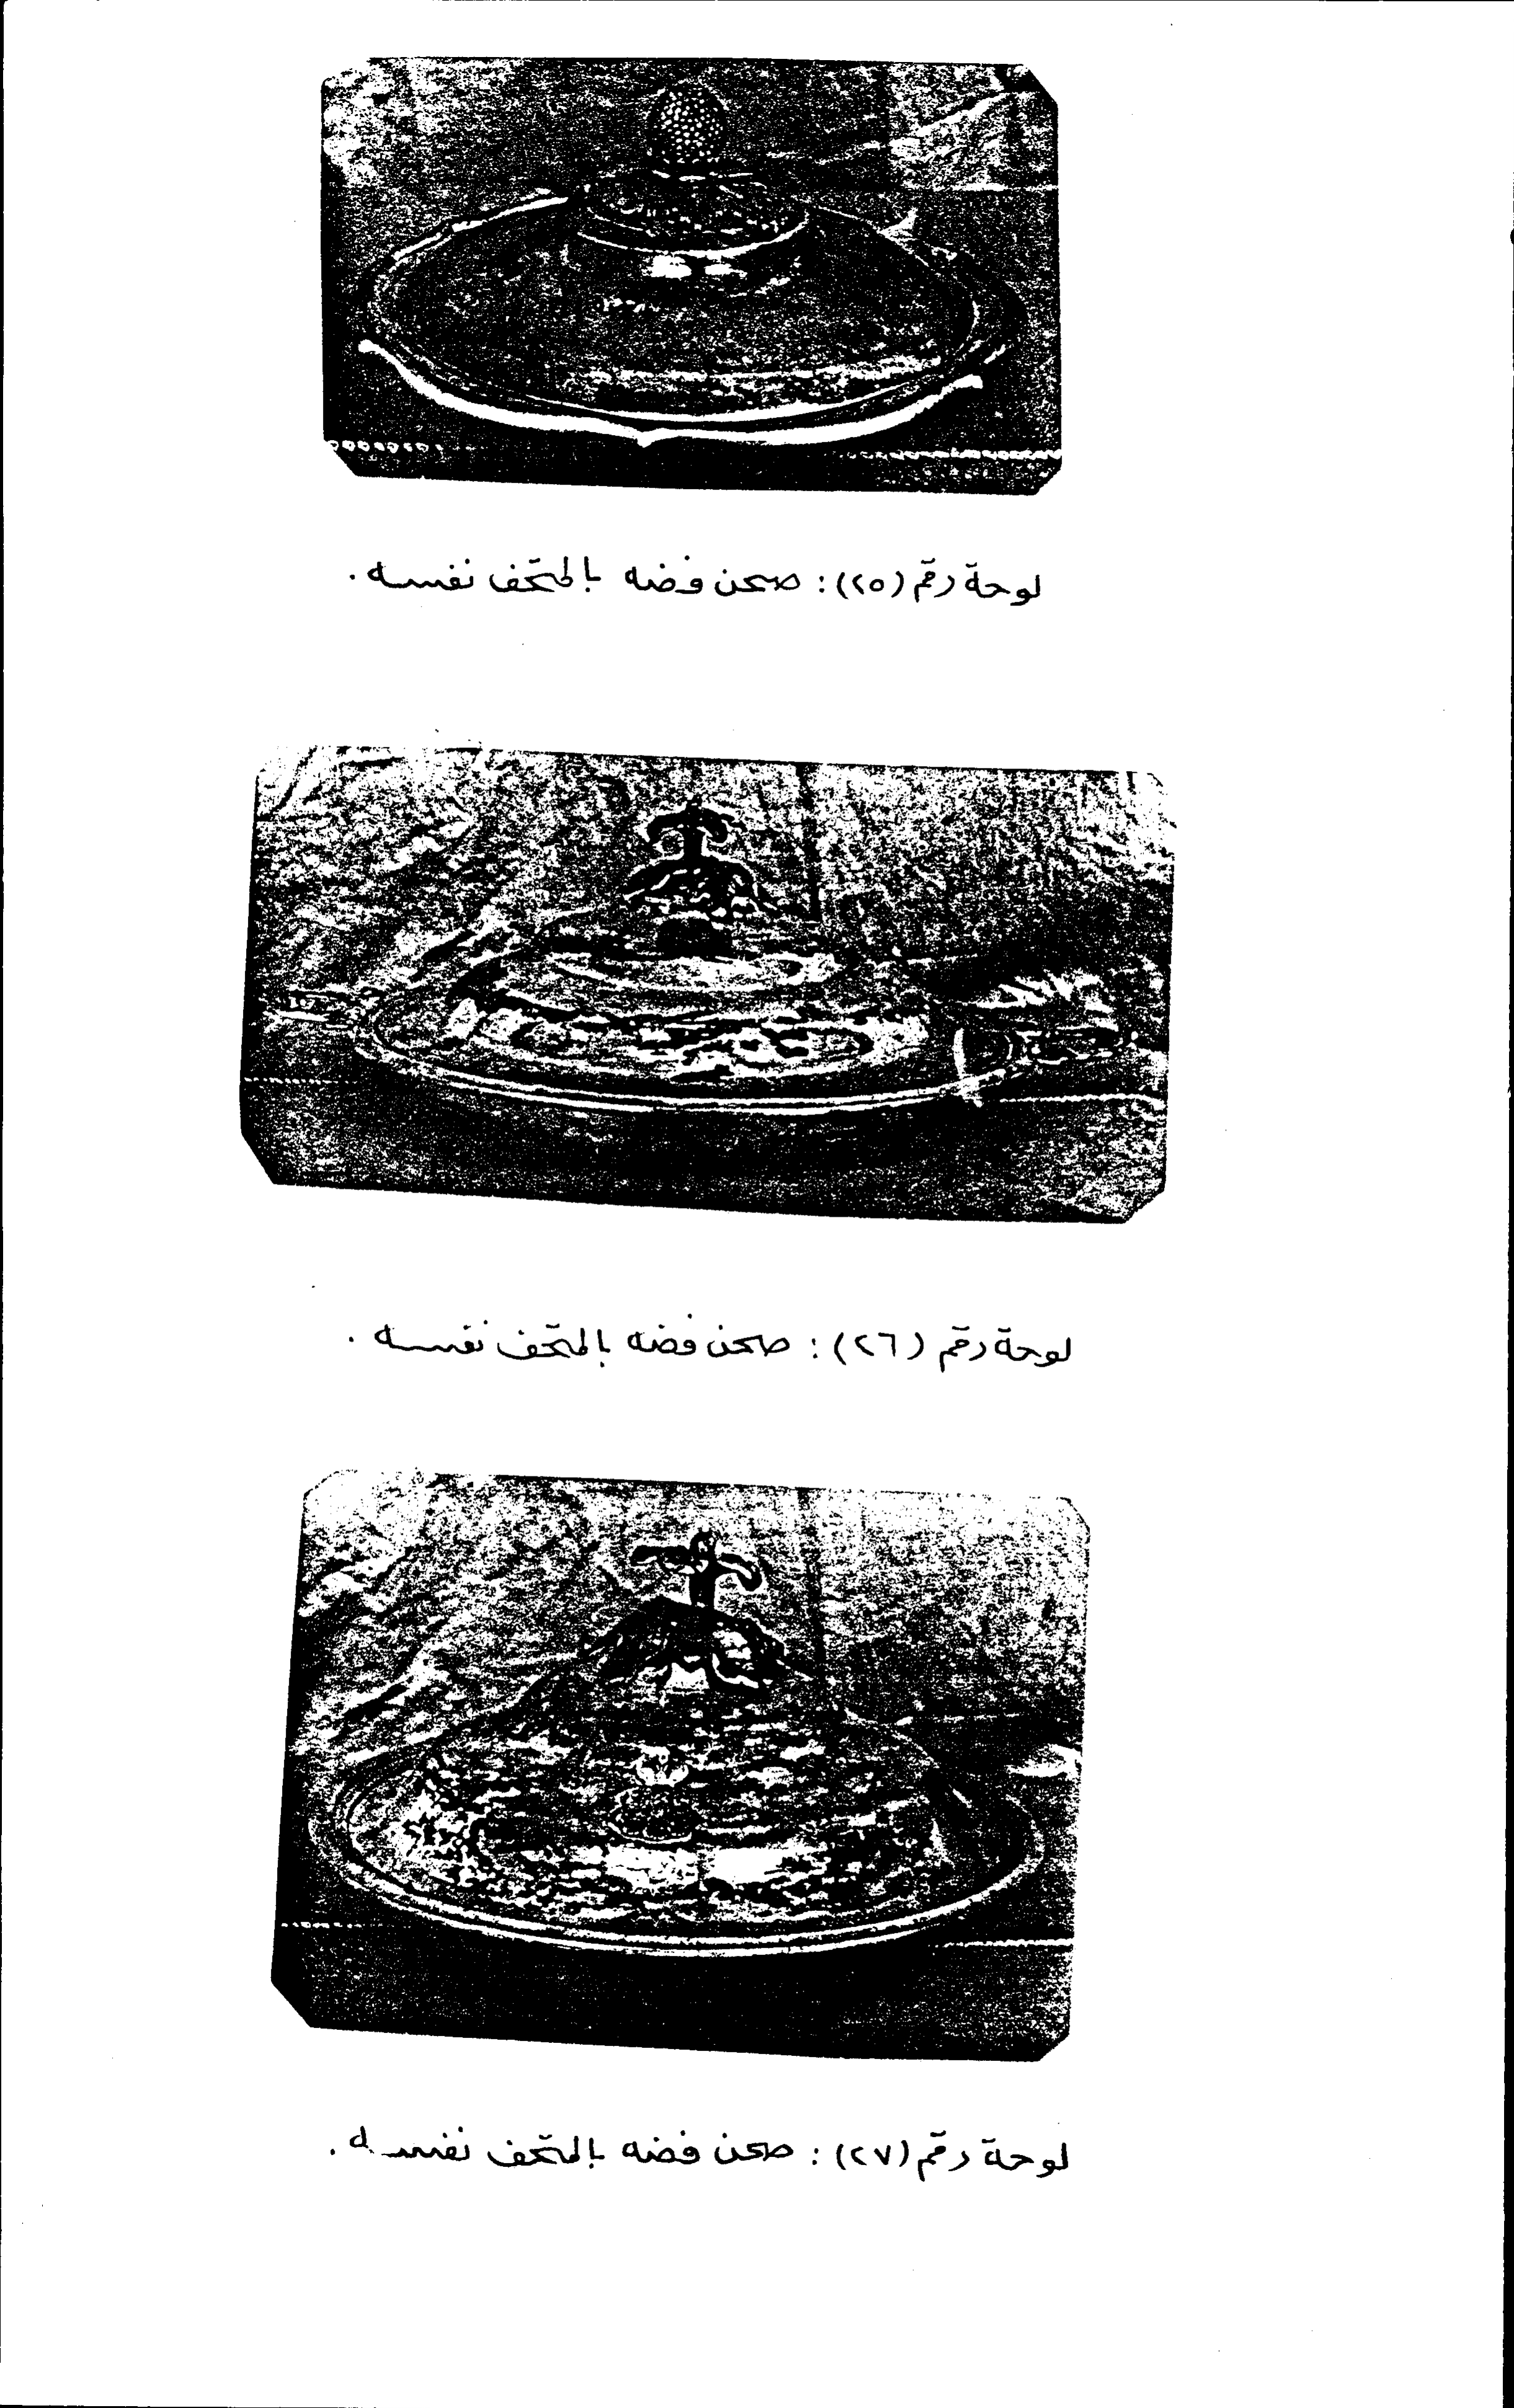 لوحة رقم (٢٥): صحن فضه بالمتحف نفسه.
لوحة رقم (٢٦): صحن فضه بالمتحف نفسه.
لوحة رقم (٢٧): صحن فضه بالمتحف نفسه.